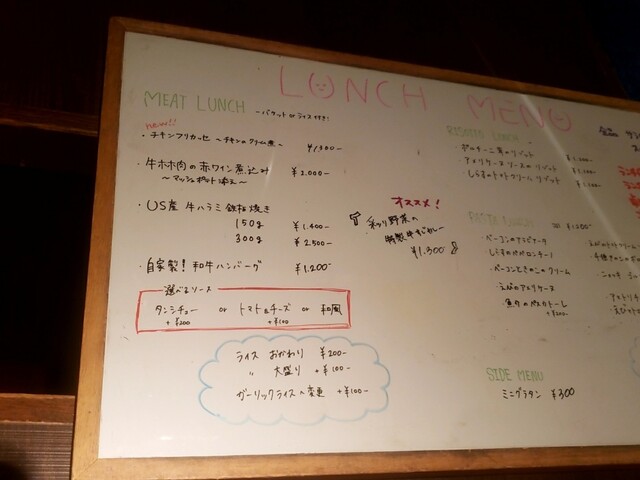 LUNCH MENU
MEAT LUNCH ~バケット or ライス付き!
new!!
・チキンフリカッセ ~チキンのクリーム煮~ ¥1,300-
・牛ホホ肉の赤ワイン煮込み ¥2.000-
~マッシュポテト添え~
・US産 牛ハラミ 鉄板焼き
150g ¥1.400-
300g ¥2.500-
・自家製! 和牛ハンバーグ ¥1.200-
選べるソース
タンシチュー or トマト&チーズ or 和風
+¥200 +¥100
ライス おかわり ¥200-
〃 大盛り +¥100-
ガーリックライスへ変更 +¥100-
オススメ!
彩り野菜の
特製牛すじカレー
¥1.300
RISOTTO LUNCH
・ポルチーニ茸のリゾット
・アメリケーヌソースのリゾット
・しらすのトマトクリームリゾット
PASTA LUNCH ¥1200-
・ベーコンのアラビアータ
・しらすのペペロンチーノ
・ベーコンときのこのクリーム
・えびのアメリケーヌ
・魚介のペスカトーレ
+200-
SIDE MENU
ミニグラタン ¥300